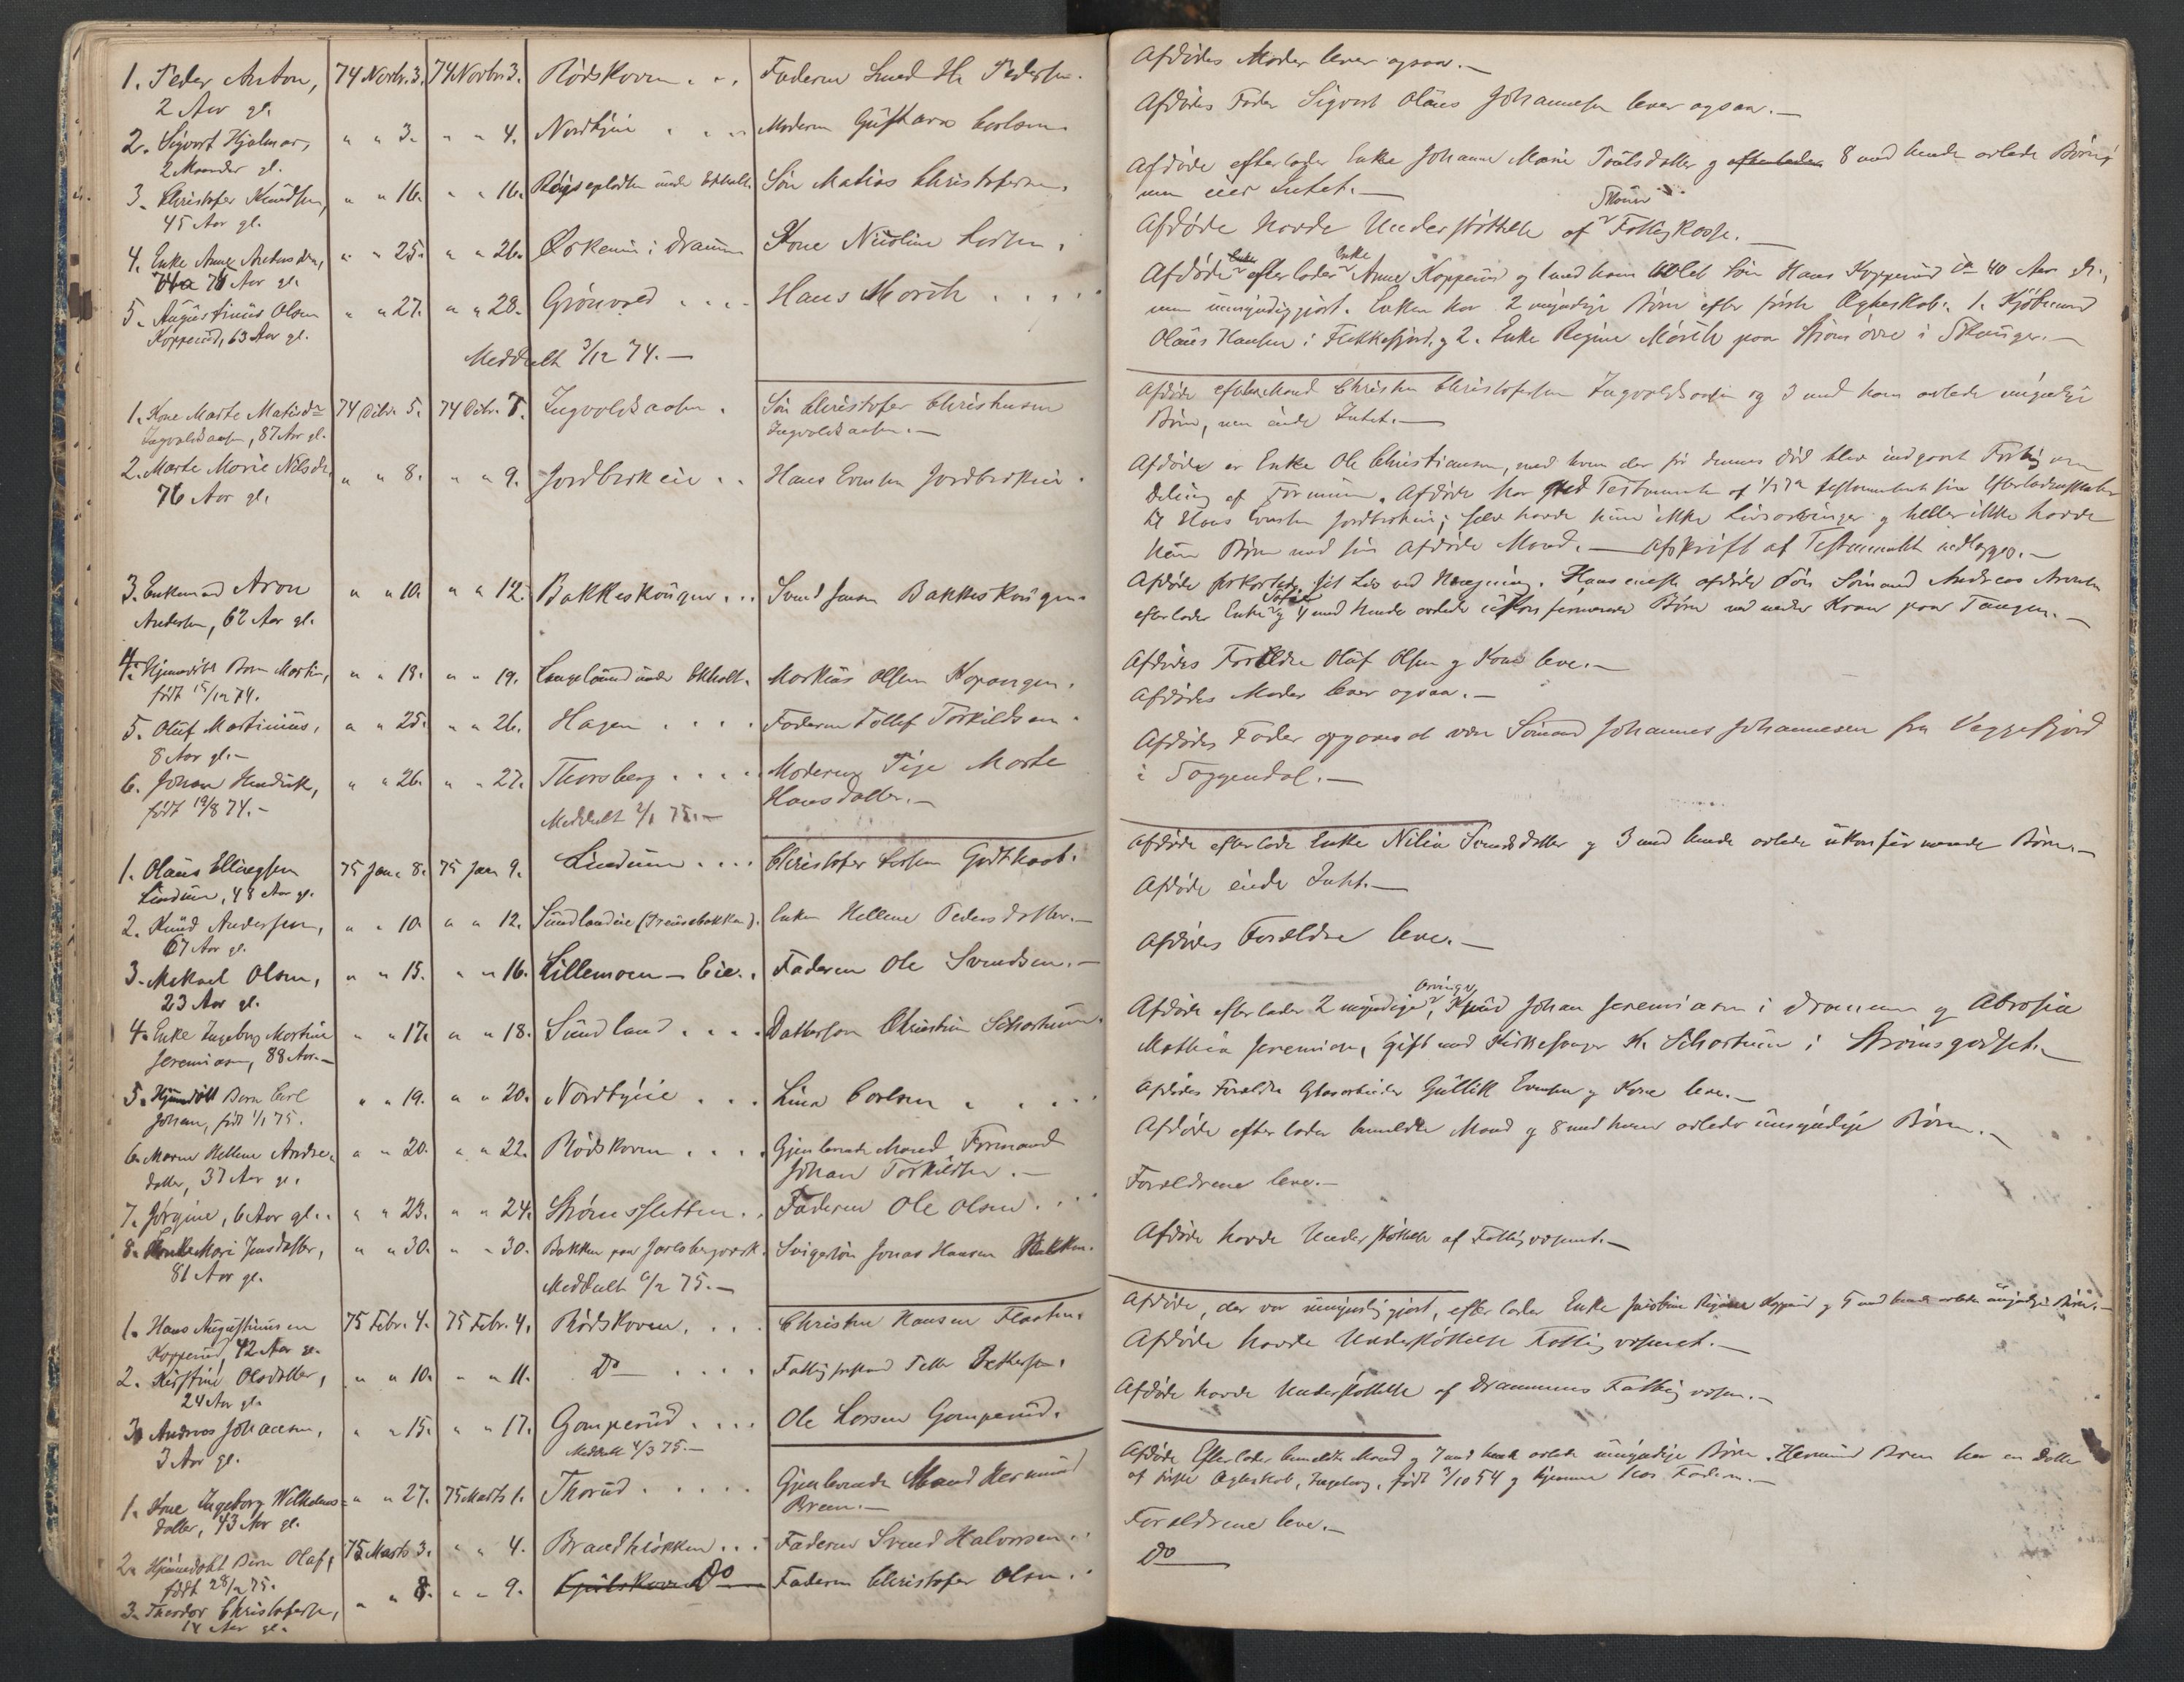 1. Peder Anton, 74 Novbr. 3. 74 Novbr. 3. Rødskoven . . . Faderen Smed H. Pedersen.
2 Aar gl.
2. Sigvart Hjalmar, " " 3. " " 4. Nordbyeie . . . Moderen Gustava Carlsen.
2 Maander gl.
3. Christofer Knudsen, " " 16. " " 16. under Ekholt. Søn Matias Christofersen.
45 Aar gl.
4. Enke Anne Andersdr., " " 25. " " 26. i Drammen Kone Nicoline Larsen.
76 Aar gl.
5. Augustinus Olsen " " 27. " " 28. Grönvold . . . Hans Morch . . . .
Kopperud, 63 Aar gl.
Meddelt 3/12 74.—
1. Kone Marte Matisdr. 74 Decbr. 5. 74 Decbr. 7. Ingvoldsaasen. Søn Christofer Christensen
Ingvoldsaasen, 87 Aar gl. Ingvoldsaasen.—
2. Marte Marie Nilsdr. " " 8. " " 9. Jordbrekeie . . Hans Evensen Jordbrekeie.
76 Aar gl.
3. Enkemand Aron " " 10. " " 12. Bakkeskougen . . . Svend Jensen Bakkeskougen.
Andersen, 62 Aar gl.
4. Hjemmedøbt Barn Martin, " " 18. " " 19. Langelund under Ekholt. Markus Olsen Kopangen.
født 15/12 74.
5. Oluf Martinius, " " 25. " " 26. Hagen . . . . Faderen Tollef Torkildsen.
8 Aar gl.—
6. Johan Hendrik, " " 26. " " 27. Thorsberg . . . . Moderen Pige Marte
født 19/8 74.— Hansdatter.—
Meddelt 2/1 75.—
1. Olaus Ellingsen 75 Jan. 8. 75 Jan. 9. Lindum . . . Christofer Larsen Godthaab.
Lindum, 48 Aar gl.
2. Knud Andersen, " " 10. " " 12. Sundlandeie Enken Hellene Pedersdatter.—
67 Aar gl.
3. Mekael Olsen, " " 15. " " 16. Lillemoen-Eie. . Faderen Ole Svendsen.—
23 Aar gl.
4. Enke Ingeborg Martine " " 17. " " 18. Sundland . . . . Dattersøn Christian Schartum.
Jeremiasen, 88 Aar.—
5. Hjemdøbt Barn Carl " " 19. " " 20. Nordbyeie . . . Lina Carlsen . . . . .
Johan, født 1/1 75.
6. Maren Hellene Andrea- " " 20. " " 22. Rødskoven . . . . Gjenlevende Mand Formand
datter, 37 Aar gl. Johan Torkildsen.—
7. Jørgine, 6 Aar gl. . " " 23. " " 24. Strømssletten . . Faderen Ole Olsen. . . .
8. Enke Mari Jensdatter, " " 30. " " 30. Bakken paa Jarlsbergværk. Svigersøn Jonas Hansen Bakken.
81 Aar gl.
Meddelt 6/2 75.—
1. Hans Augustinusen 75 Febr. 4. 75 Febr. 4. Rødskoven . . . Christen Hansen Flaaten.
Kopperud, 42 Aar gl.
2. Kirstine Olsdatter, " " 10. " " 11. Do . . . . Fattigforstand Petter Pettersen.
24 Aar gl.
3. Andreas Johansen, " " 15. " " 17. Gamperud . . . . Ole Larsen Gamperud.
3 Aar gl. Meddelt 4/3 75.—
1. Kone Ingeborg Wilhelms- " " 27. 75 Marts 1. Thorud . . . . . Gjenlevende Mand Hermund
datter, 43 Aar gl. Breen.—
2. Hjemmedøbt Barn Olaf, 75 Marts 3. " " 4. Brandhløkken . . . Faderen Svend Halvorsen. .
født 28/2 75.
3. Theodor Christofersen, " " 8. " " 9. Do Faderen Christofer Olsen. .
Aar gl.
Afdødes Moder lever ogsaa.—
Afdødes Fader Sigvart Olaus Johannesen lever ogsaa.—
Afdøde efterlader Enke Johanne Marie Poulsdatter og efterlader 8 med hende avlede Børn,
men eier Intet.—
Afdøde havde Understøttelse af Skouger Fattigkasse.—
Afdøde efterlader Enke Anne Kopperud og 1 med ham avlet Søn Hans Kopperud ca 40 Aar gl.,
men umyndiggjort. Enken har 2 myndige Børn efter første Ægteskab: 1. Kjøbmand
Olaus Hansen i Flekkefjord, og 2. Enke Regine Mørch paa Strømsøre i Skouger.—
Afdøde efterl. Mand Christen Christofersen Ingvoldsaasen og 3 med ham avlede myndige
Børn, men eiede Intet.—
Afdøde er Enke Ole Christiansen, med hvem der før dennes Død blev indgaaet Forlig om
Deling af Formuen. Afdøde har ved Testamente af testamenteret sine Efterladenskaber
til Hans Evensen Jordbrekeie; selv havde hun ikke Livsarvinger og heller ikke havde
hun Børn med sin afdøde Mand.— Afskrift af Testamentet indlægges.—
Afdøde forkortede sit Liv ved Hængning. Hans eneste afdøde Søn Sømand Andreas Aronsen
efterlader Enke Sofie og 4 med hende avlede ukonfirmerede Børn nedenfor Kroen paa Tangen.—
Afdødes Forældre Oluf Olsen og Kone leve.—
Afdødes Moder lever ogsaa.—
Afdødes Fader opgaves at være Sømand Johannes Johannesen fra Veggefjord
i Soggendal.—
Afdøde efterlod Enke Nilia Svendsdatter og 3 med hende avlede ukonfirmerede Børn.—
Afdøde eiede Intet.—
Afdødes Forældre leve.—
Afdøde efterlader 2 myndige Arvinger, Knud Johan Jeremiasen i Drammen og Abrosia
Mathea Jeremiasen, gift med Kirkesanger K. Schartum i Strømsgodset.—
Afdødes Forældre Glasarbeider Gullik Evensen og Kone leve.—
Afdøde efterlader bemeldte Mand og 8 med ham avlede umyndige Børn.—
Forældrene leve.—
Afdøde havde Understøttelse af Fattigvæsenet.—
Afdøde, der var umyndiggjort, efterlader Enke Jacobine Regine Kopperud og 5 med hende avlede umyndige Børn.—
Afdøde havde Understøttelse Fattigvæsenet.—
Afdøde havde Understøttelse af Drammens Fattigvæsen.—
Afdøde Efterlader bemeldte Mand og 7 med hende avlede umyndige Børn. Hermund Breen har en Datter
af første Ægteskab, Ingeborg, født 3/10 54 og hjemme hos Faderen.—
Forældrene leve.—
Do